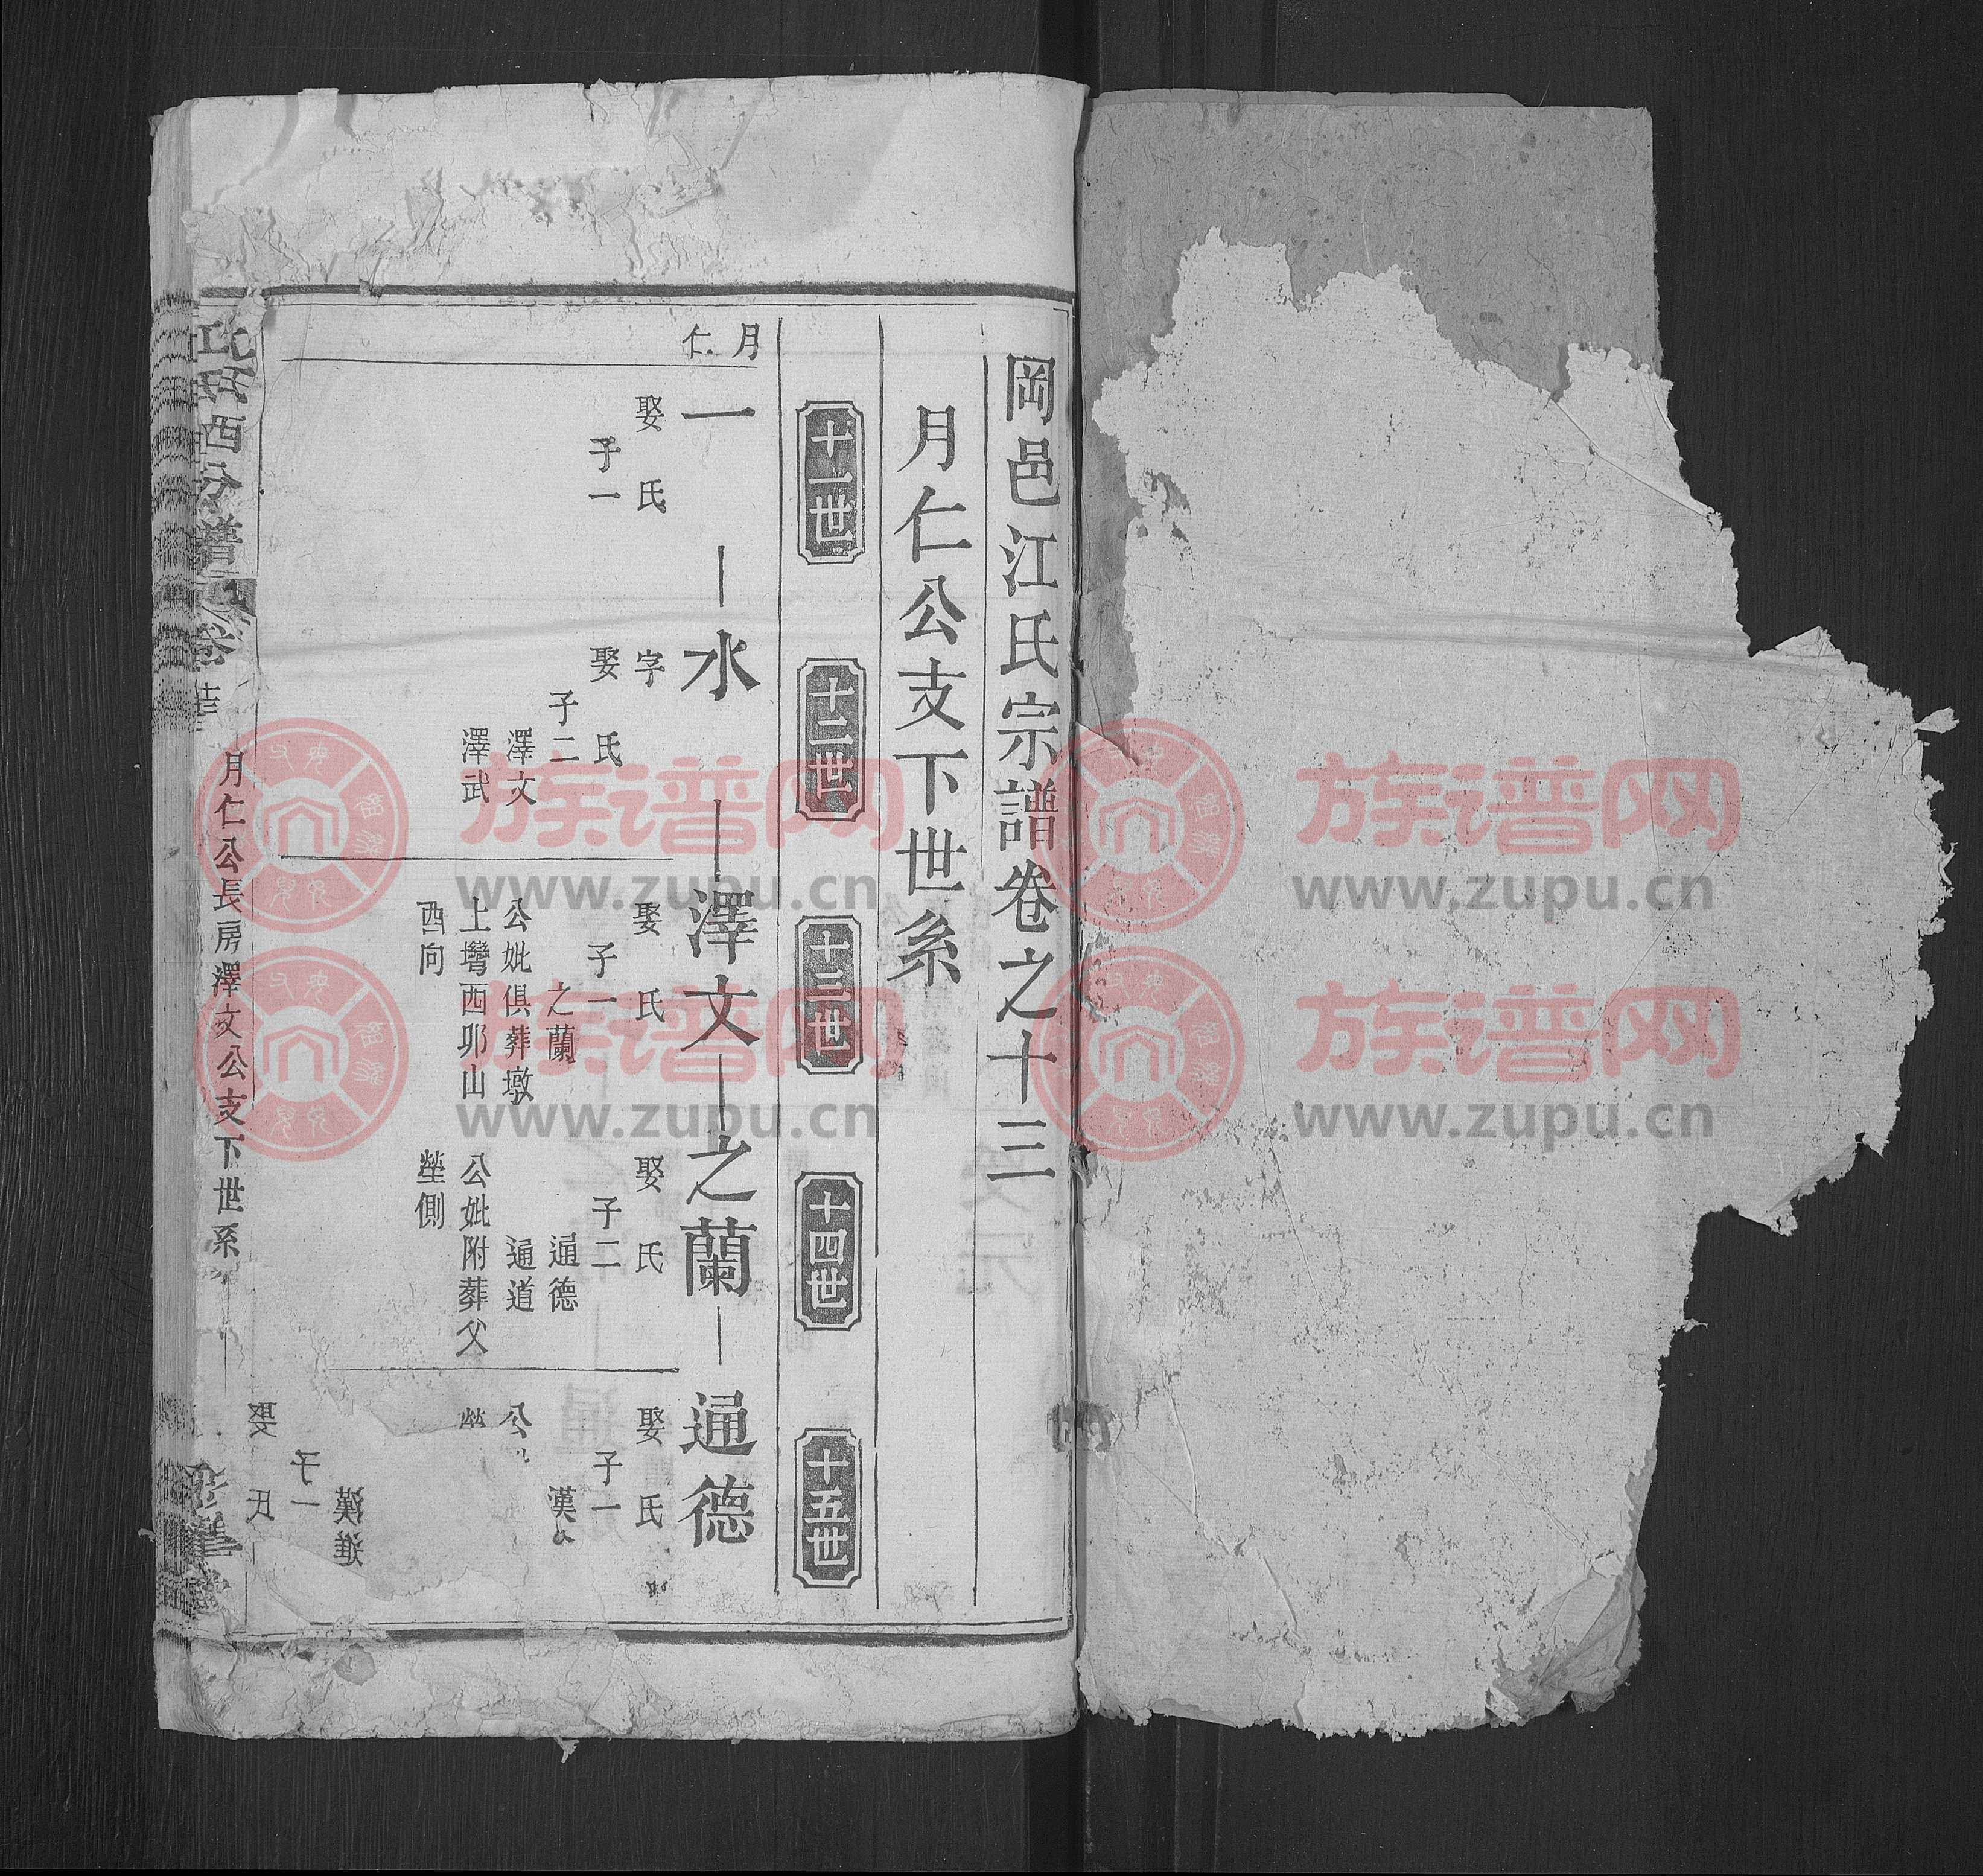 岡邑江氏宗譜卷之十三
月仁公支下世系
十一世
十二世
十三世
十四世
十五世
月仁
一
娶 氏
子一
水
字
娶 氏
子二
澤文
澤武
澤文
娶 氏
子一
之蘭
公妣俱葬墩
上塆西卯山
酉向
之蘭
娶 氏
子二
通德
通道
公妣附葬父
塋側
通德
娶 氏
子一
漢
公
氏西分譜
卷
月仁公長房澤文公支下世系
娶 氏
子一
漢進
族谱网
www.zupu.cn
族谱网
www.zupu.cn
族谱网
www.zupu.cn
族谱网
www.zupu.cn